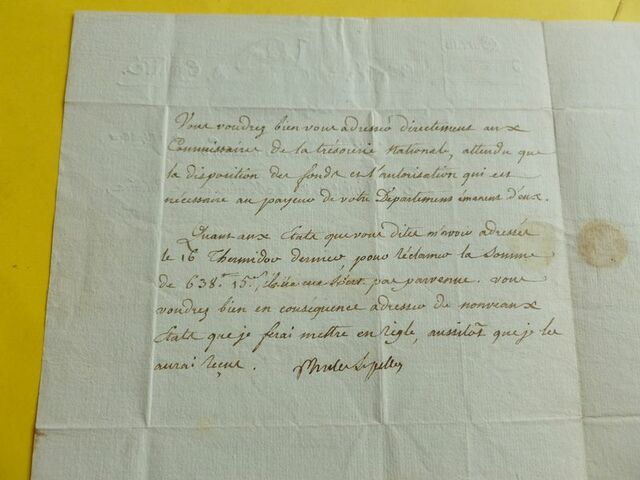 Vous voudrez bien vous adresser directement aux
Commissaires de la trésorerie Nationale, attendu que
la disposition des fonds et l'autorisation qui est
nécessaire au payeur de votre Département émanent d'eux.
Quant aux Etats que vous dites m'avoir adressés
le 16 Thermidor dernier pour réclamer la somme
de 638.tt 15.s pas parvenue. vous
voudrez bien en conséquence adresser de nouveaux
Etats que je ferai mettre en règle, aussitôt que je les
aurai reçus.